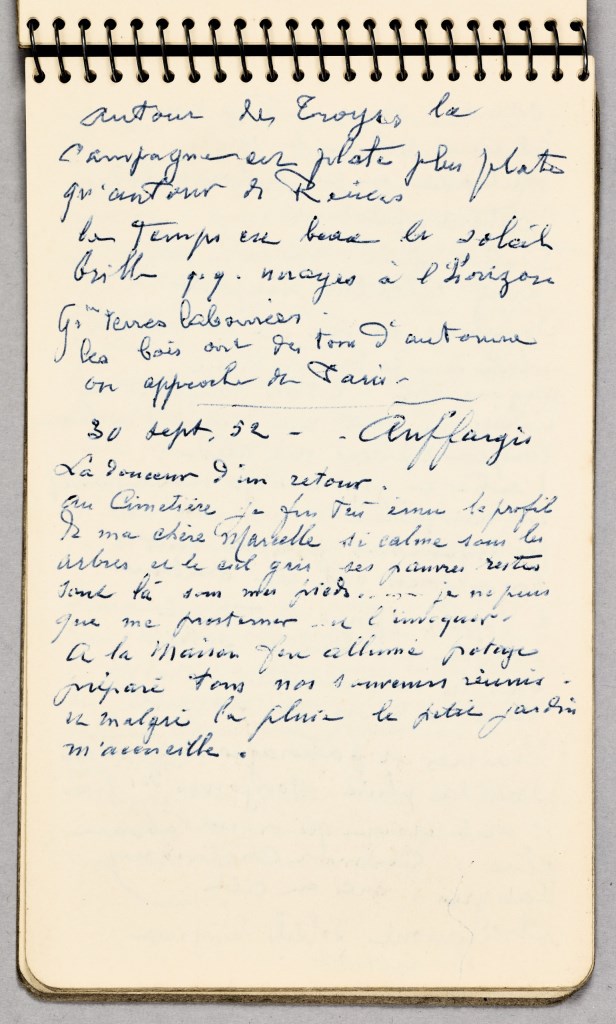 autour de Troyes la
campagne est plate plus plate
qu'autour de Reims
le Temps est beau le soleil
brille q.q. nuages à l'Horizon
Gdes terres labourées.
les bois ont des tons d'automne
on approche de Paris -
30 sept. 52 - . Auffargis
La douceur d'un retour.
au Cimetière je fus très ému le profil
de ma chère Marcelle si calme sous les
arbres et le ciel gris ses pauvres restes
sont là sous mes pieds ..... je ne puis
que me prosterner et l'invoquer.
A la Maison feu allumé potage
préparé tous nos souvenirs réunis.
et malgré la pluie le petit jardin
m'accueille.